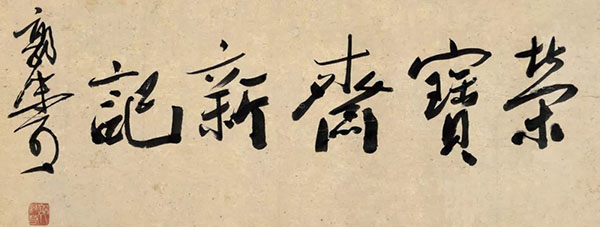 榮寶齋新記
郭沫若